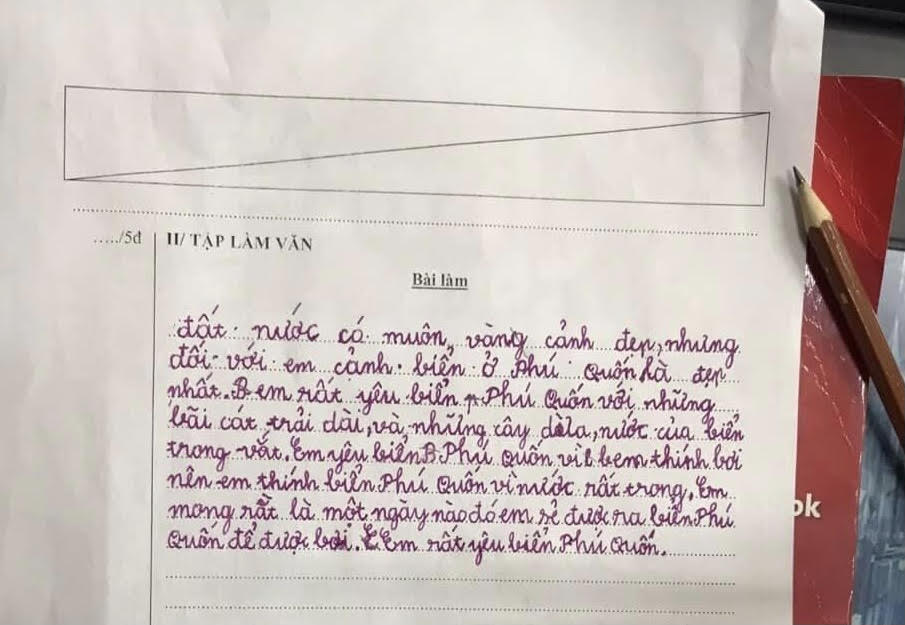 ...../5đ
II/ TẬP LÀM VĂN
Bài làm
đất nước có muôn, vàng cảnh đẹp, nhưng
đối với em cảnh biển ở Phú Quốn là đẹp
nhất. B em rất yêu biển Phú Quốn với những
bãi cát trải dài, và những cây dừa, nước của biển
trong vắt. Em yêu biển B Phú Quốn vì em thính bơi
nên em thính biển Phú Quốn vì nước rất trong. Em
mong rằt là một ngày nào đó em sẽ được ra biển Phú
Quốn để được bơi. Em rất yêu biển Phú Quốn.
ok